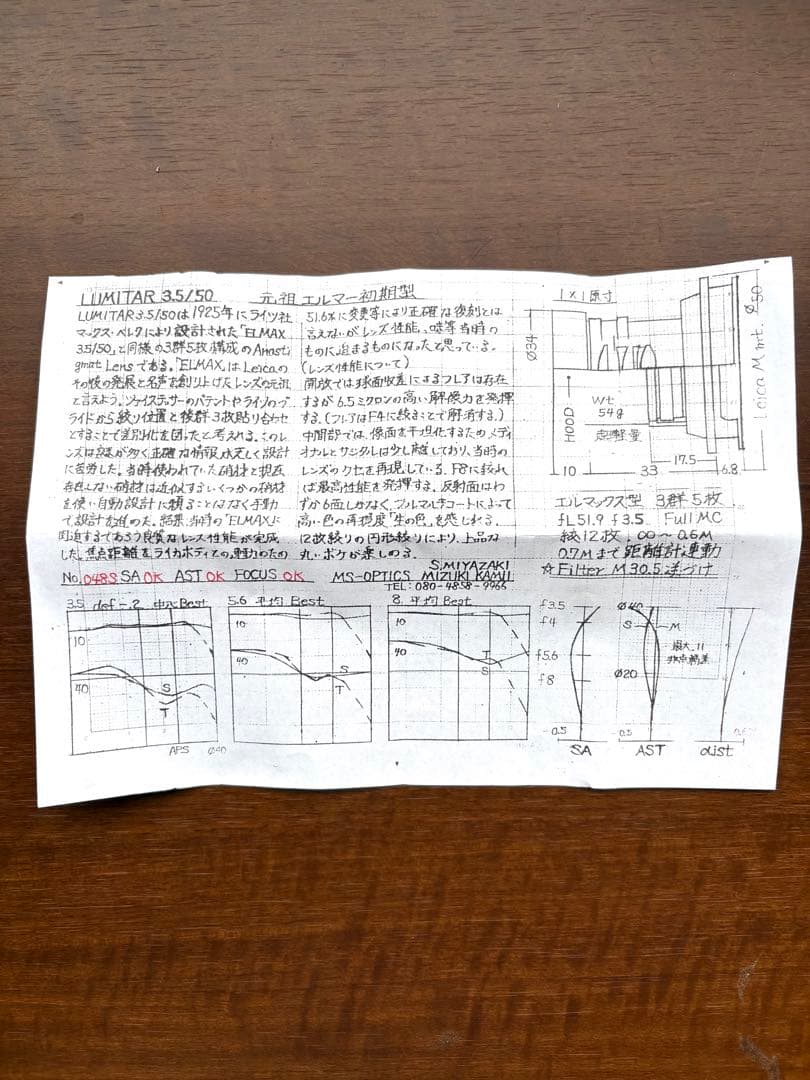 LUMITAR 3.5/50 元祖エルマー初期型
LUMITAR 3.5/50は1925年にライツ社
マックス・ベレクにより設計された「ELMAX
3.5/50」と同様の3群5枚構成のAnasti
gmat Lensである。「ELMAX」はLeicaの
その後の発展と名声を創り上げたレンズの元祖
と言えよう。ツァイステッサーのパテントやライツのプ
ライドから絞り位置と後群3枚貼り合わせ
とすることで差別化を図ったと考える。このレ
ンズは謎が多く正確な情報が乏しく設計
に苦労した。当時使われていた硝材と現在
存在しない硝材は近似するいくつかの硝材
を使い自動設計に頼ることはなく手動
で設計を進めた。結果、当時の「ELMAX」に
肉迫するであろう良質なレンズ性能が完成
した。焦点距離をライカボディとの連動のため
51.6mmに変更等により正確な復刻とは
言えないがレンズ性能、味等当時の
ものに迫るものになったと思っている。
(レンズ性能について)
開放では球面収差によるフレアは存在
するが6.5ミクロンの高い解像力を発揮
する。(フレアはF4に絞ることで解消する。)
中間部では、像面を平坦化するためメディ
オナルとサジタルは少し離しており、当時の
レンズのクセを再現している。F8に絞れ
ば最高性能を発揮する。反射面はわ
ずか6面しかなく、フルマルチコートによって
高い色の再現度「生の色」を感じれる。
12枚絞りの円形絞りにより、上品な
丸いボケが楽しめる。
No. 048S SA OK AST OK FOCUS OK MS-OPTICS
S.MIYAZAKI
MIZUKI KAMIJI
TEL: 080-4858-9965
1×1原寸
Ø34
HOOD
Wt.
54g
超軽量
10
33
17.5
6.8
Ø50
Leica M mt.
エルマックス型 3群5枚
fL51.9 f3.5 Full MC
絞12枚. ∞〜0.6M
0.7Mまで距離計連動
☆Filter M30.5逆づけ
3.5 def-.2 中心Best
10
40
S
T
APS Ø40
5.6 平均 Best
10
40
S
T
8. 平均 Best
10
40
T
S
f3.5
f4
f5.6
f8
-0.5
SA
Ø40
S M
最大.11
非点隔差
Ø20
-0.5
AST
dist